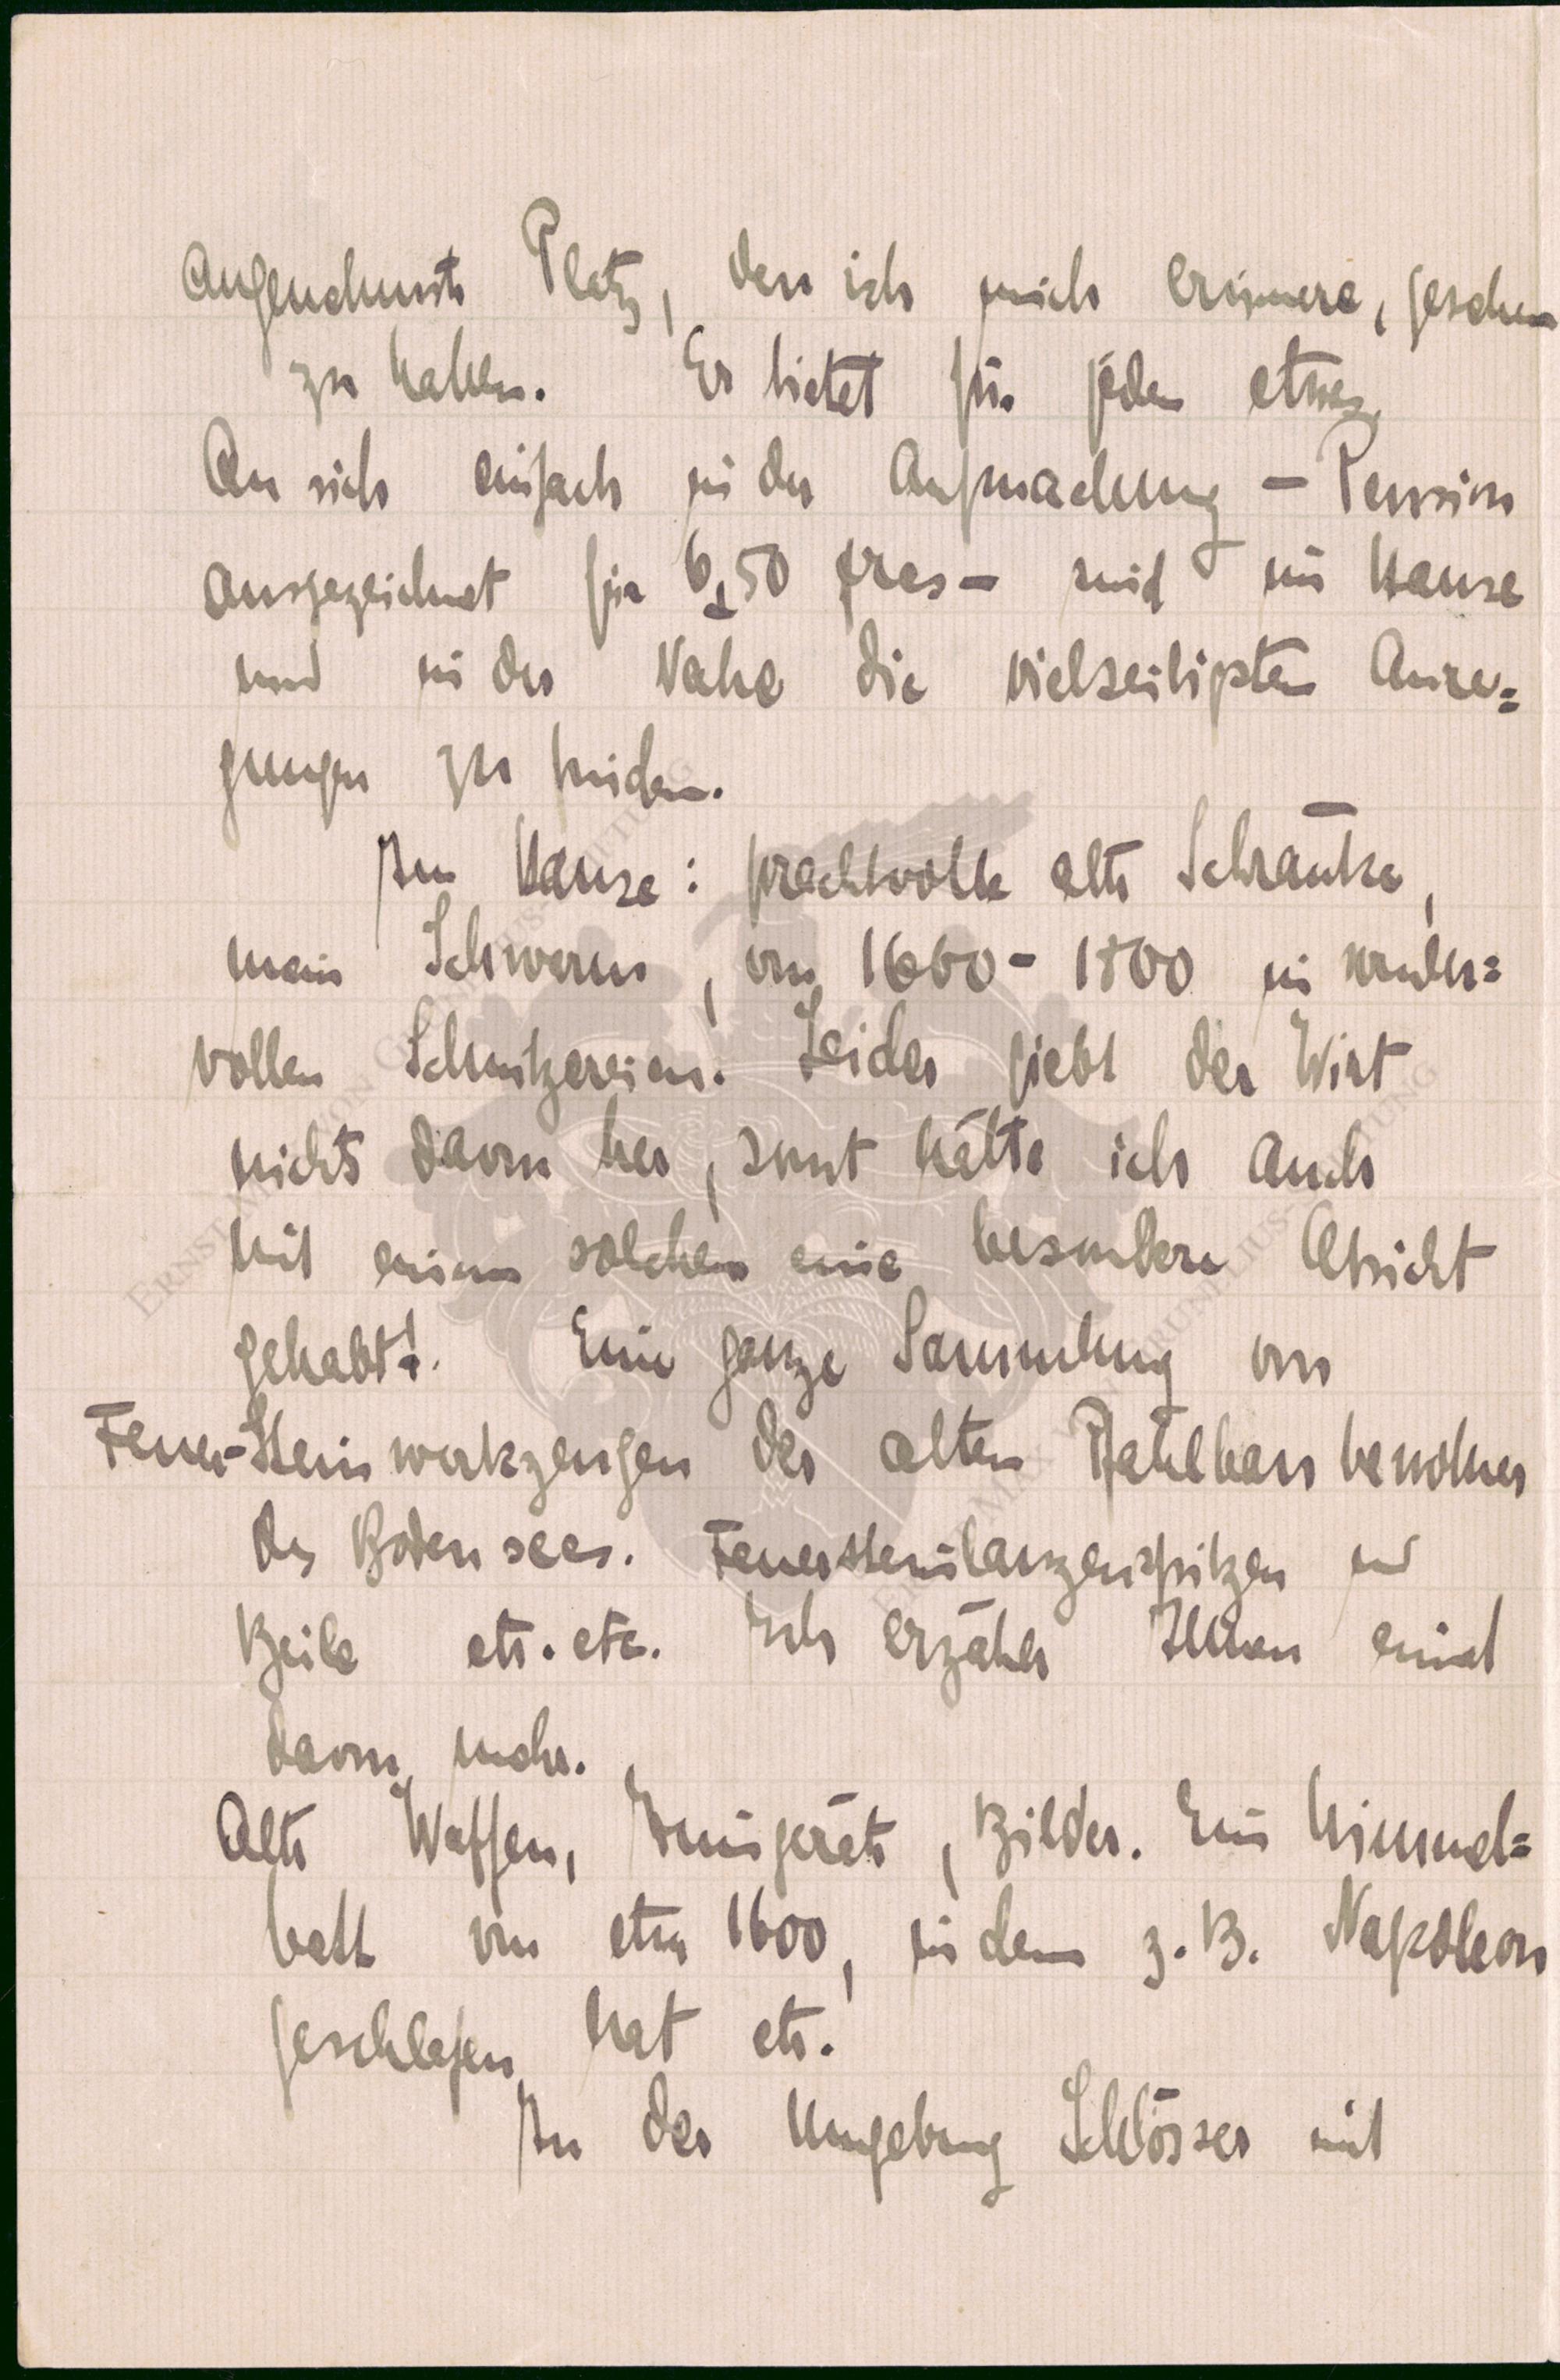 angenehmste Platz, den ich mich erinnere, gesehen
zu haben. Er bietet für jeden etwas.
An sich einfach in der Aufmachung – Pension
ausgezeichnet für 6,50 frcs – sind im Hause
und in der Nähe die vielseitigsten Anre=
gungen zu finden.
Im Hause: prachtvolle alte Schränke,
mein Schwarm, von 1660 - 1800 in wunder=
vollen Schnitzereien. Leider giebt der Wirt
nichts davon her, sonst hätte ich auch
mit einem solchen eine besondere Absicht
gehabt! Eine ganze Sammlung von
Feuer-Steinwerkzeugen der alten Pfahlbaubewohner
des Bodensees. Feuersteinlanzenspitzen und
Beile etc. etc. Ich erzähle Ihnen einmal
davon mehr.
Alte Waffen, Zinngeräte, Bilder. Ein Himmel=
bett von etwa 1600, in dem z. B. Napoleon
geschlafen hat etc.
In der Umgebung Schlösser mit